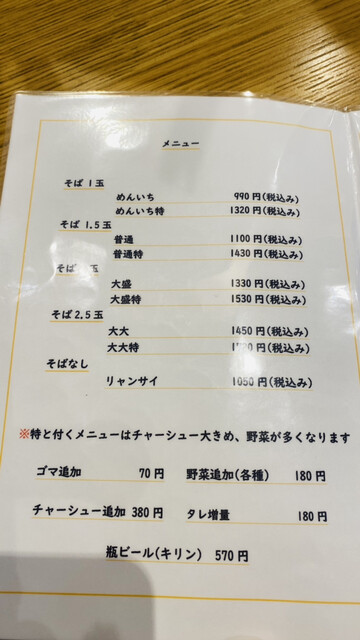 メニュー
そば 1玉
めんいち 990円(税込み)
めんいち特 1320円(税込み)
そば 1.5玉
普通 1100円(税込み)
普通特 1430円(税込み)
そば 玉
大盛 1330円(税込み)
大盛特 1530円(税込み)
そば 2.5玉
大大 1450円(税込み)
大大特 円(税込み)
そばなし
リャンサイ 1050円(税込み)
※特と付くメニューはチャーシュー大きめ、野菜が多くなります
ゴマ追加 70円 野菜追加(各種) 180円
チャーシュー追加 380円 タレ増量 180円
瓶ビール(キリン) 570円